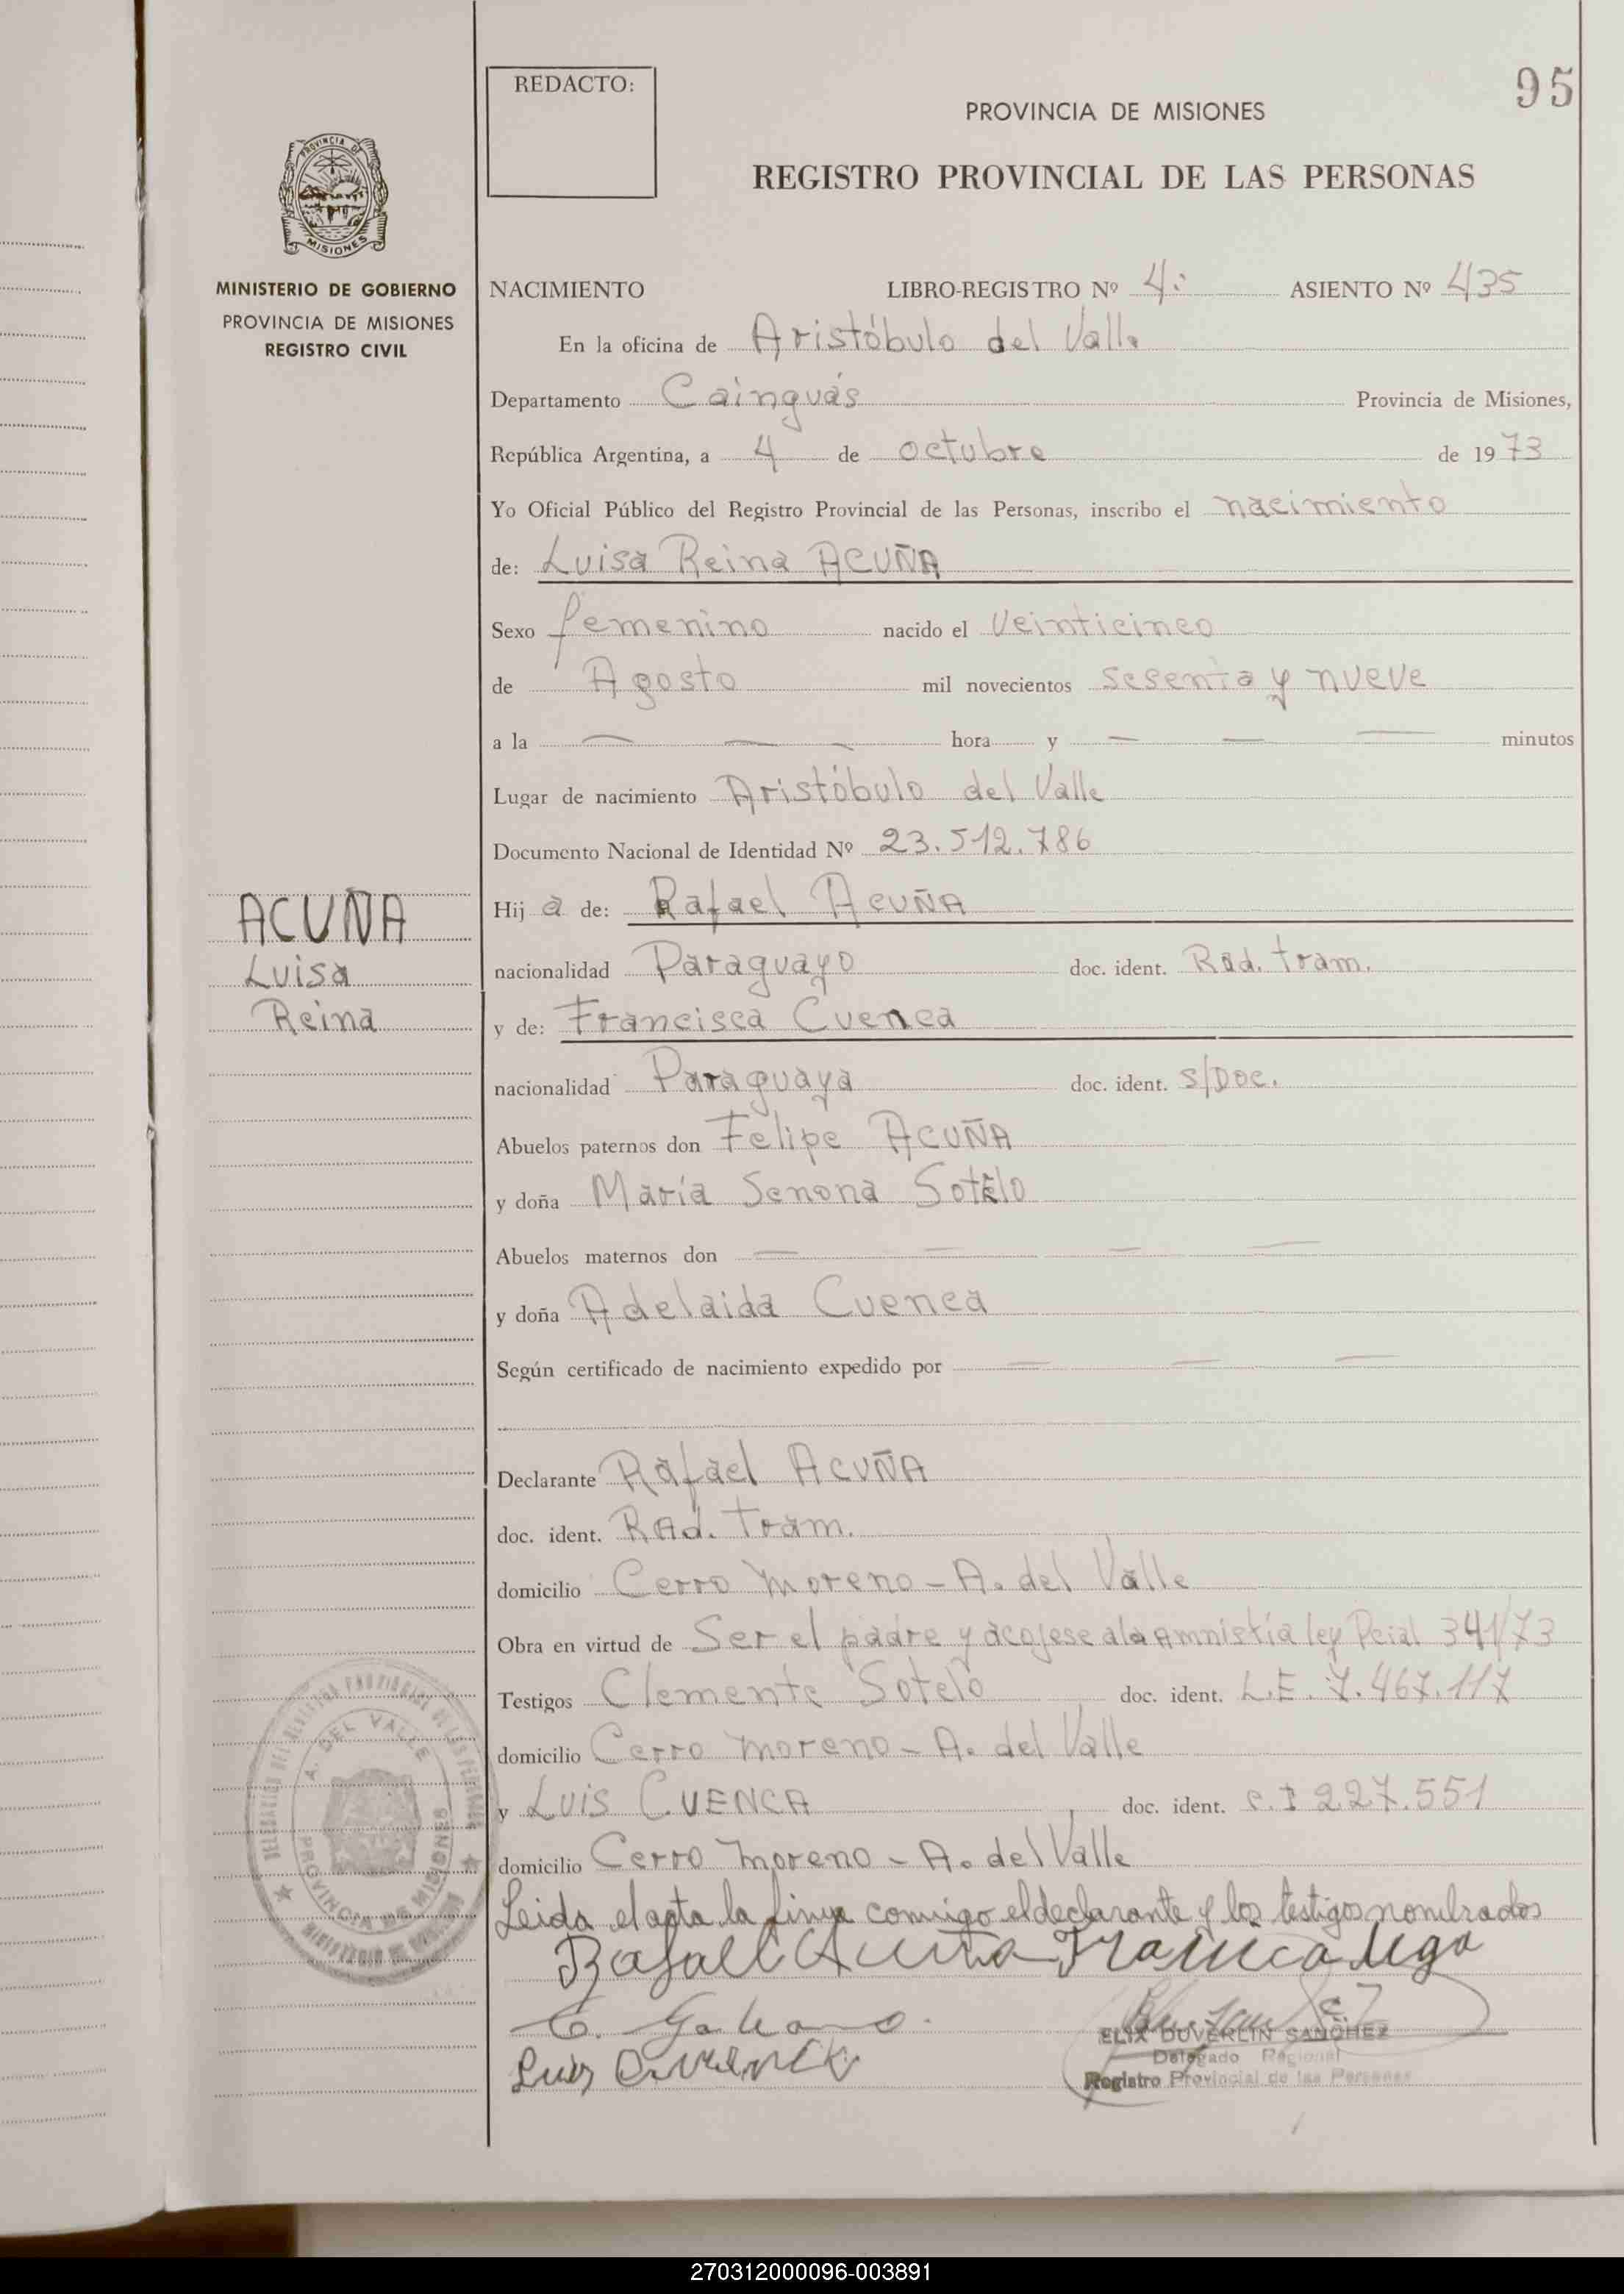 95
REDACTO:
PROVINCIA DE MISIONES
REGISTRO PROVINCIAL DE LAS PERSONAS
PROVINCIA DE
MISIONES
MINISTERIO DE GOBIERNO
PROVINCIA DE MISIONES
REGISTRO CIVIL
NACIMIENTO LIBRO-REGISTRO Nº 4: ASIENTO Nº 435
En la oficina de Aristóbulo del Valle
Departamento Cainguás Provincia de Misiones,
República Argentina, a 4 de octubre de 1973
Yo Oficial Público del Registro Provincial de las Personas, inscribo el nacimiento
de: Luisa Reina ACUÑA
Sexo femenino nacido el Veinticinco
de Agosto mil novecientos sesenta y nueve
a la — — — hora y — — — minutos
Lugar de nacimiento Aristóbulo del Valle
Documento Nacional de Identidad Nº 23.512.786
ACUÑA
Luisa
Reina
Hij a de: Rafael ACUÑA
nacionalidad Paraguayo doc. ident. Rad. tram.
y de: Francisca Cuenca
nacionalidad Paraguaya doc. ident. s/Doc.
Abuelos paternos don Felipe ACUÑA
y doña María Senona Sotelo
Abuelos maternos don — — — —
y doña Adelaida Cuenca
Según certificado de nacimiento expedido por — — —
Declarante Rafael ACUÑA
doc. ident. RAd. Tram.
domicilio Cerro Moreno - A. del Valle
Obra en virtud de Ser el padre y acojese a la Amnistía ley Pcial 341/73
Testigos Clemente Sotelo doc. ident. L.E. 7.467.117
domicilio Cerro Moreno - A. del Valle
y Luis CUENCA doc. ident. C.I 227.551
domicilio Cerro Moreno - A. del Valle
Leida el acta la firma conmigo el declarante y los testigos nombrados
Rafael Acuña
ELIX DUVERLIN SANCHEZ
Delegado Regional
Registro Provincial de las Personas
A. DEL VALLE
PROVINCIA DE MISIONES
270312000096-003891